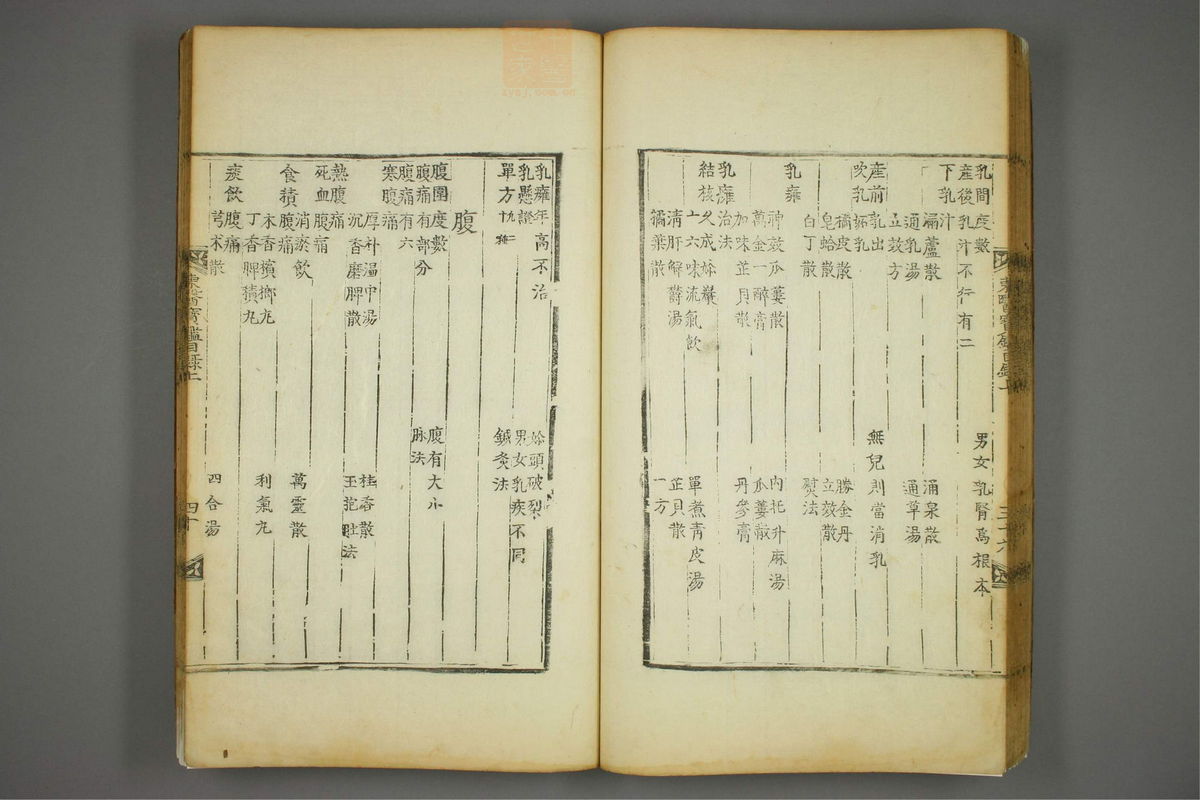 乳間度數 男女乳腎爲根本
產後乳汁不行有二
下乳汁
漏蘆散 涌泉散
通乳湯 通草湯
立效方
產前乳出 無兒則當消乳
吹乳妬乳
橘皮散 勝金丹
皂蛤散 立效散
白丁散 熨法
乳癰
神效瓜蔞散 內托升麻湯
萬金一醉膏 瓜蔞散
加味芷貝散 丹參膏
乳癰治法
結核久成妳巖
十六味流氣飮 單煮靑皮湯
淸肝解鬱湯 芷貝散
橘葉散 一方
東醫寶鑑目錄上
乳癰年高不治 妳頭破裂
乳懸證 男女乳疾不同
單方 鍼灸法
腹
腹圍度數 腹有大小
腹痛有部分 脉法
腹痛有六
寒腹痛
厚朴溫中湯 桂香散
沉香磨脾散 玉抱肚法
熱腹痛
死血腹痛
消瘀飮 萬靈散
食積腹痛
木香檳榔丸 利氣丸
丁香脾積丸
痰飮腹痛
芎朮散 四合湯
東醫寶鑑目錄上 四十
zysj.com.cn